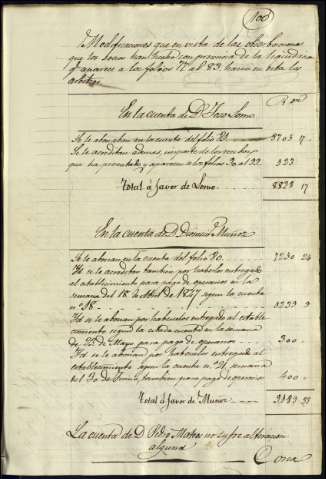 100
Modificaciones que en vista de las observaciones
que los Sres. han hecho con presencia de la liquidacion
q.e aparece a los folios 77 al 83 hacen en esta los
arbitros
R.s vn
En la cuenta de D. Jose Lomo
Se le abonaban en la cuenta del folio 20 8703 17
Se le acreditan ademas, importe de los recibos
que ha presentado y aparecen a los folios 30 al 22 323
Total á favor de Lomo 8828 17
En la cuenta de D. Dionisio Muñoz
Se le abonan en la cuenta del folio 20 7230 24
Yd se le acreditan tambien por haberlos entregado
al establecimiento para pago de operarios en la
semana del 18 de Abril de 1847 segun la cuenta
n.º 18 8233 9
Yd se le abonan por haberlos entregado al estable
cimiento segun la citada cuenta en la semana
de 23 de Mayo para pago de operarios 300
Yd se le abonan por haberlos entregado al
establecimiento segun la cuenta n.º 21, semana
del 20 de Junio, tambien para pago de operarios 400
Total á favor de Muñoz
La cuenta de D. Pedro Mateo no sufre alteracion
alguna